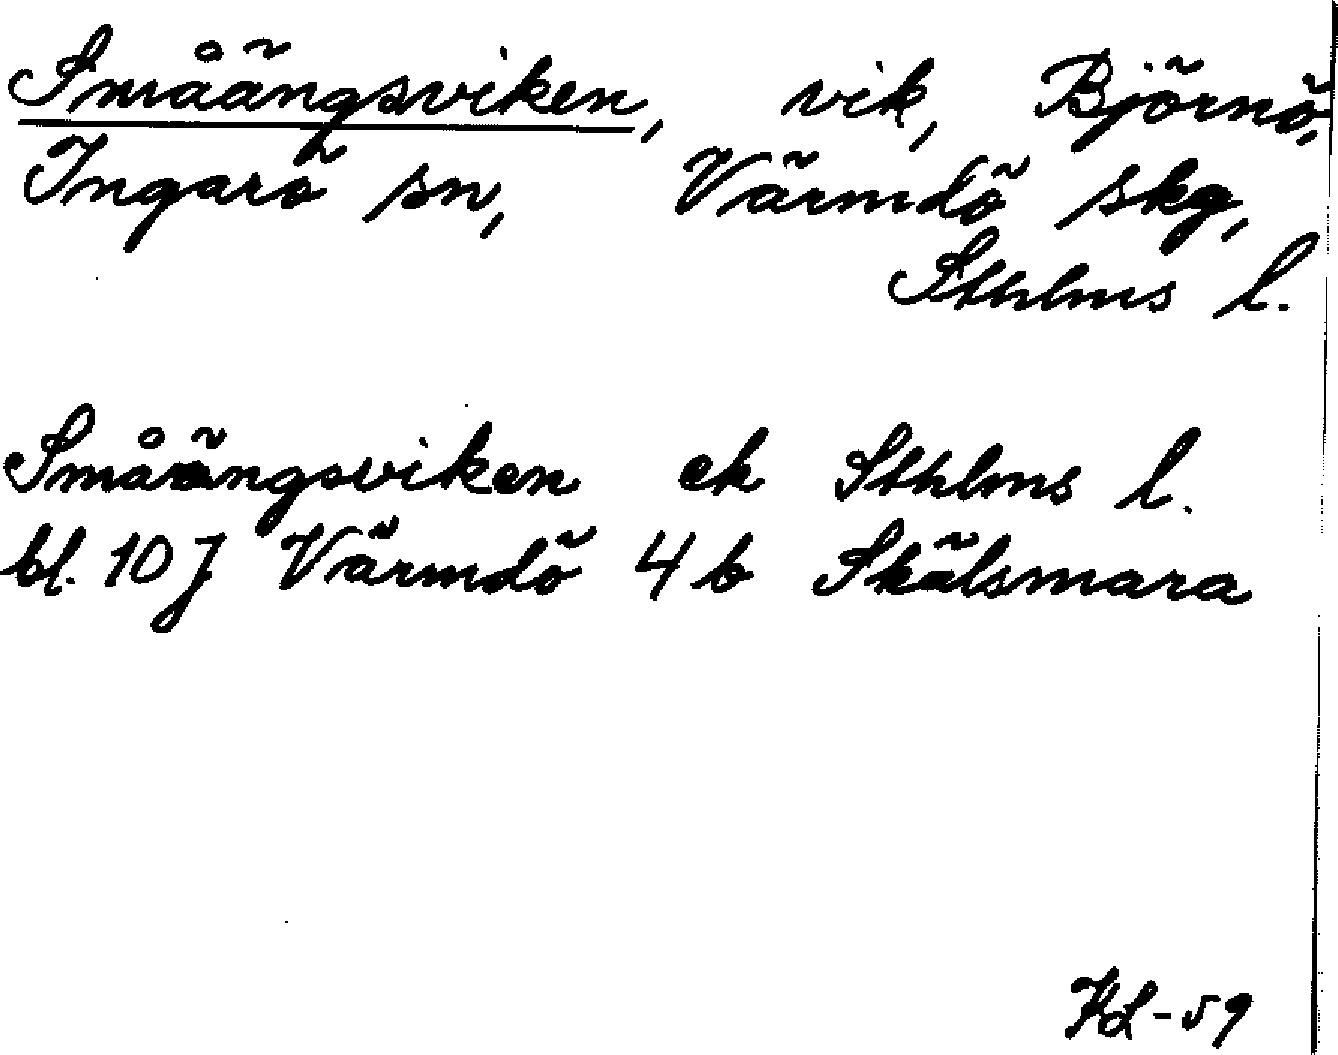 Småängsviken, vik, Björnö,
Ingarö sn, Värmdö skg,
Sthlms l.
Småängsviken ek Sthlms l.
bl. 10 J Värmdö 4 b Skälsmara
HL-59